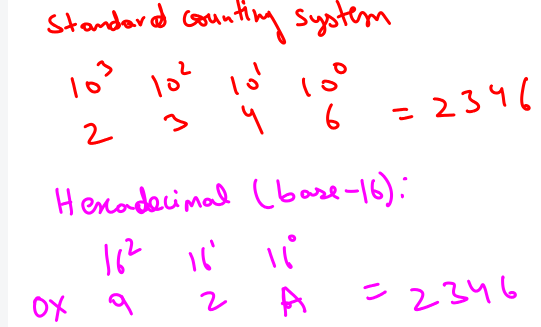 Standard counting system
10³ 10² 10¹ 10⁰
2 3 4 6 = 2346
Hexadecimal (base-16):
16² 16¹ 16⁰
0x 9 2 A = 2346